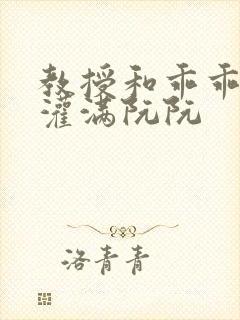 教授和乖乖
灌满阮阮
洛青青